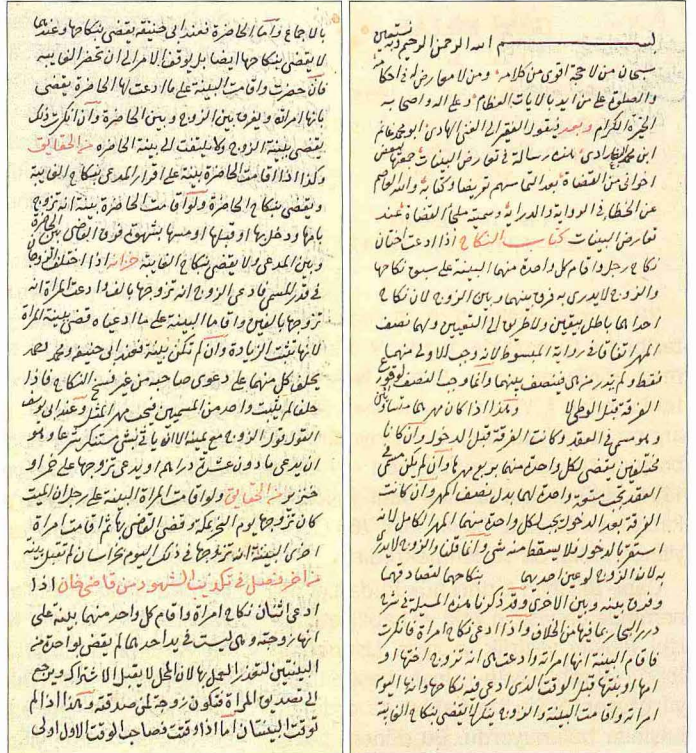 بسم الله الرحمن الرحيم وبه نستعين
سبحان من لا حجة اقوى من كلامه ومن لا معارض له في احكامه
والصلوة على من ايد بالايات العظام وعلى اله واصحابه
البررة الكرام وبعد فيقول الفقير الى الغنى الهادى ابو محمد غانم
ابن محمد البغدادى هذه رسالة في تعارض البينات جمعتها لبعض
اخوانى من القضاة بعد التماسهم تعريضا وكناية والله العاصم
عن الخطا في الرواية والدراية وسميته ملجأ القضاة عند
تعارض البينات كتاب النكاح اذا ادعت اختان
نكاح رجل واقام كل واحدة منهما البينة على سبق نكاحها
والزوج لا يدرى به فرق بينهما وبين الزوج لان نكاح
احداهما باطل بيقين ولا طريق الى التعيين ولهما نصف
المهر اتفاقا في رواية المبسوط لانه وجب للاولى منهما
فقط ولم يدر من هى فينصف بينهما وانما وجب النصف لوقوع
الفرقة قبل الوطى وهذا اذا كان مهرهما متساويين
وهو مسمى في العقد وكانت الفرقة قبل الدخول وان كانا
مختلفين يقضى لكل واحدة منهما بربع مهرها وان لم يكن مسمى في
العقد تجب متعة واحدة لهما بدل نصف المهر وان كانت
الفرقة بعد الدخول يجب لكل واحدة منهما المهر الكامل لانه
استقر بالدخول فلا يسقط منه شئ وانما قلنا والزوج لا يدرى
به لان الزوج لو عين احديهما نكاحهما لتصادقهما
وفرق بينه وبين الاخرى وقد ذكرنا هذه المسئلة في شرح
درر البحار بما فيها من الخلاف واذا ادعى نكاح امراة فانكرت
فاقام البينة انها امراته وادعت هى انه تزوج اختها او
امها او بنتها قبل الوقت الذى ادعى فيه نكاحها وانها اليوم
امراته واقامت البينة والزوج ينكر لا يقضى بنكاح الغايبة
بالاجماع واما الحاضرة فعند ابى حنيفة يقضى بنكاحها وعندهما
لا يقضى بنكاحها ايضا بل يوقف الامر الى ان تحضر الغايبة
فان حضرت واقامت البينة على ما ادعت لها الحاضرة يقضى
بانها امراته ويفرق بين الزوج وبين الحاضرة وان انكرت ذلك
يقضى ببينة الزوج ولا يلتفت الى بينة الحاضرة من الحقايق
وكذا اذا اقامت الحاضرة بينة على اقرار المدعى بنكاح الغايبة
ويقضى بنكاح الحاضرة ولو اقامت الحاضرة بينة انه تزوج
بامها ودخل بها او قبلها او مسها بشهوة فرق القاضى بين الحاضرة
وبين المدعى ولا يقضى بنكاح الغايبة خزانة اذا اختلف الزوجان
في قدر المسمى فادعى الزوج انه تزوجها بالف وادعت المراة انه
تزوجها بالفين واقاما البينة على ما ادعياه قضى ببينة المراة
لانها تثبت الزيادة وان لم تكن بينة فعند ابى حنيفة ومحمد
يحلف كل منهما على دعوى صاحبه من غير فسخ النكاح فاذا
حلفا لم يثبت واحد من المسميين فيجب مهر المثل وعند ابى يوسف
القول قول الزوج مع يمينه الا ان ياتى بشئ مستنكر شرعا وهو
ان يدعى ما دون عشرة دراهم او يدعى تزوجها على خمر او
خنزير من الحقايق ولو اقامت المراة البينة على رجل ان الميت
كان تزوجها يوم النحر بمكة وقضى القاضى بها ثم اقامت امراة
اخرى البينة انه تزوجها في ذلك اليوم بخراسان لم تقبل بينة
من اخر فصل في تكذيب الشهود من قاضى خان اذا
ادعى اثنان نكاح امراة واقام كل واحد منهما بينة على
انها زوجته وهى ليست في يد احدهما لم يقض بواحدة من
البينتين لتعذر العمل بهما لان المحل لا يقبل الاشتراك ويرجع
الى تصديق المراة فتكون زوجة لمن صدقته وهذا اذا لم
توقت البينتان اما اذا وقتت فصاحب الوقت الاول اولى